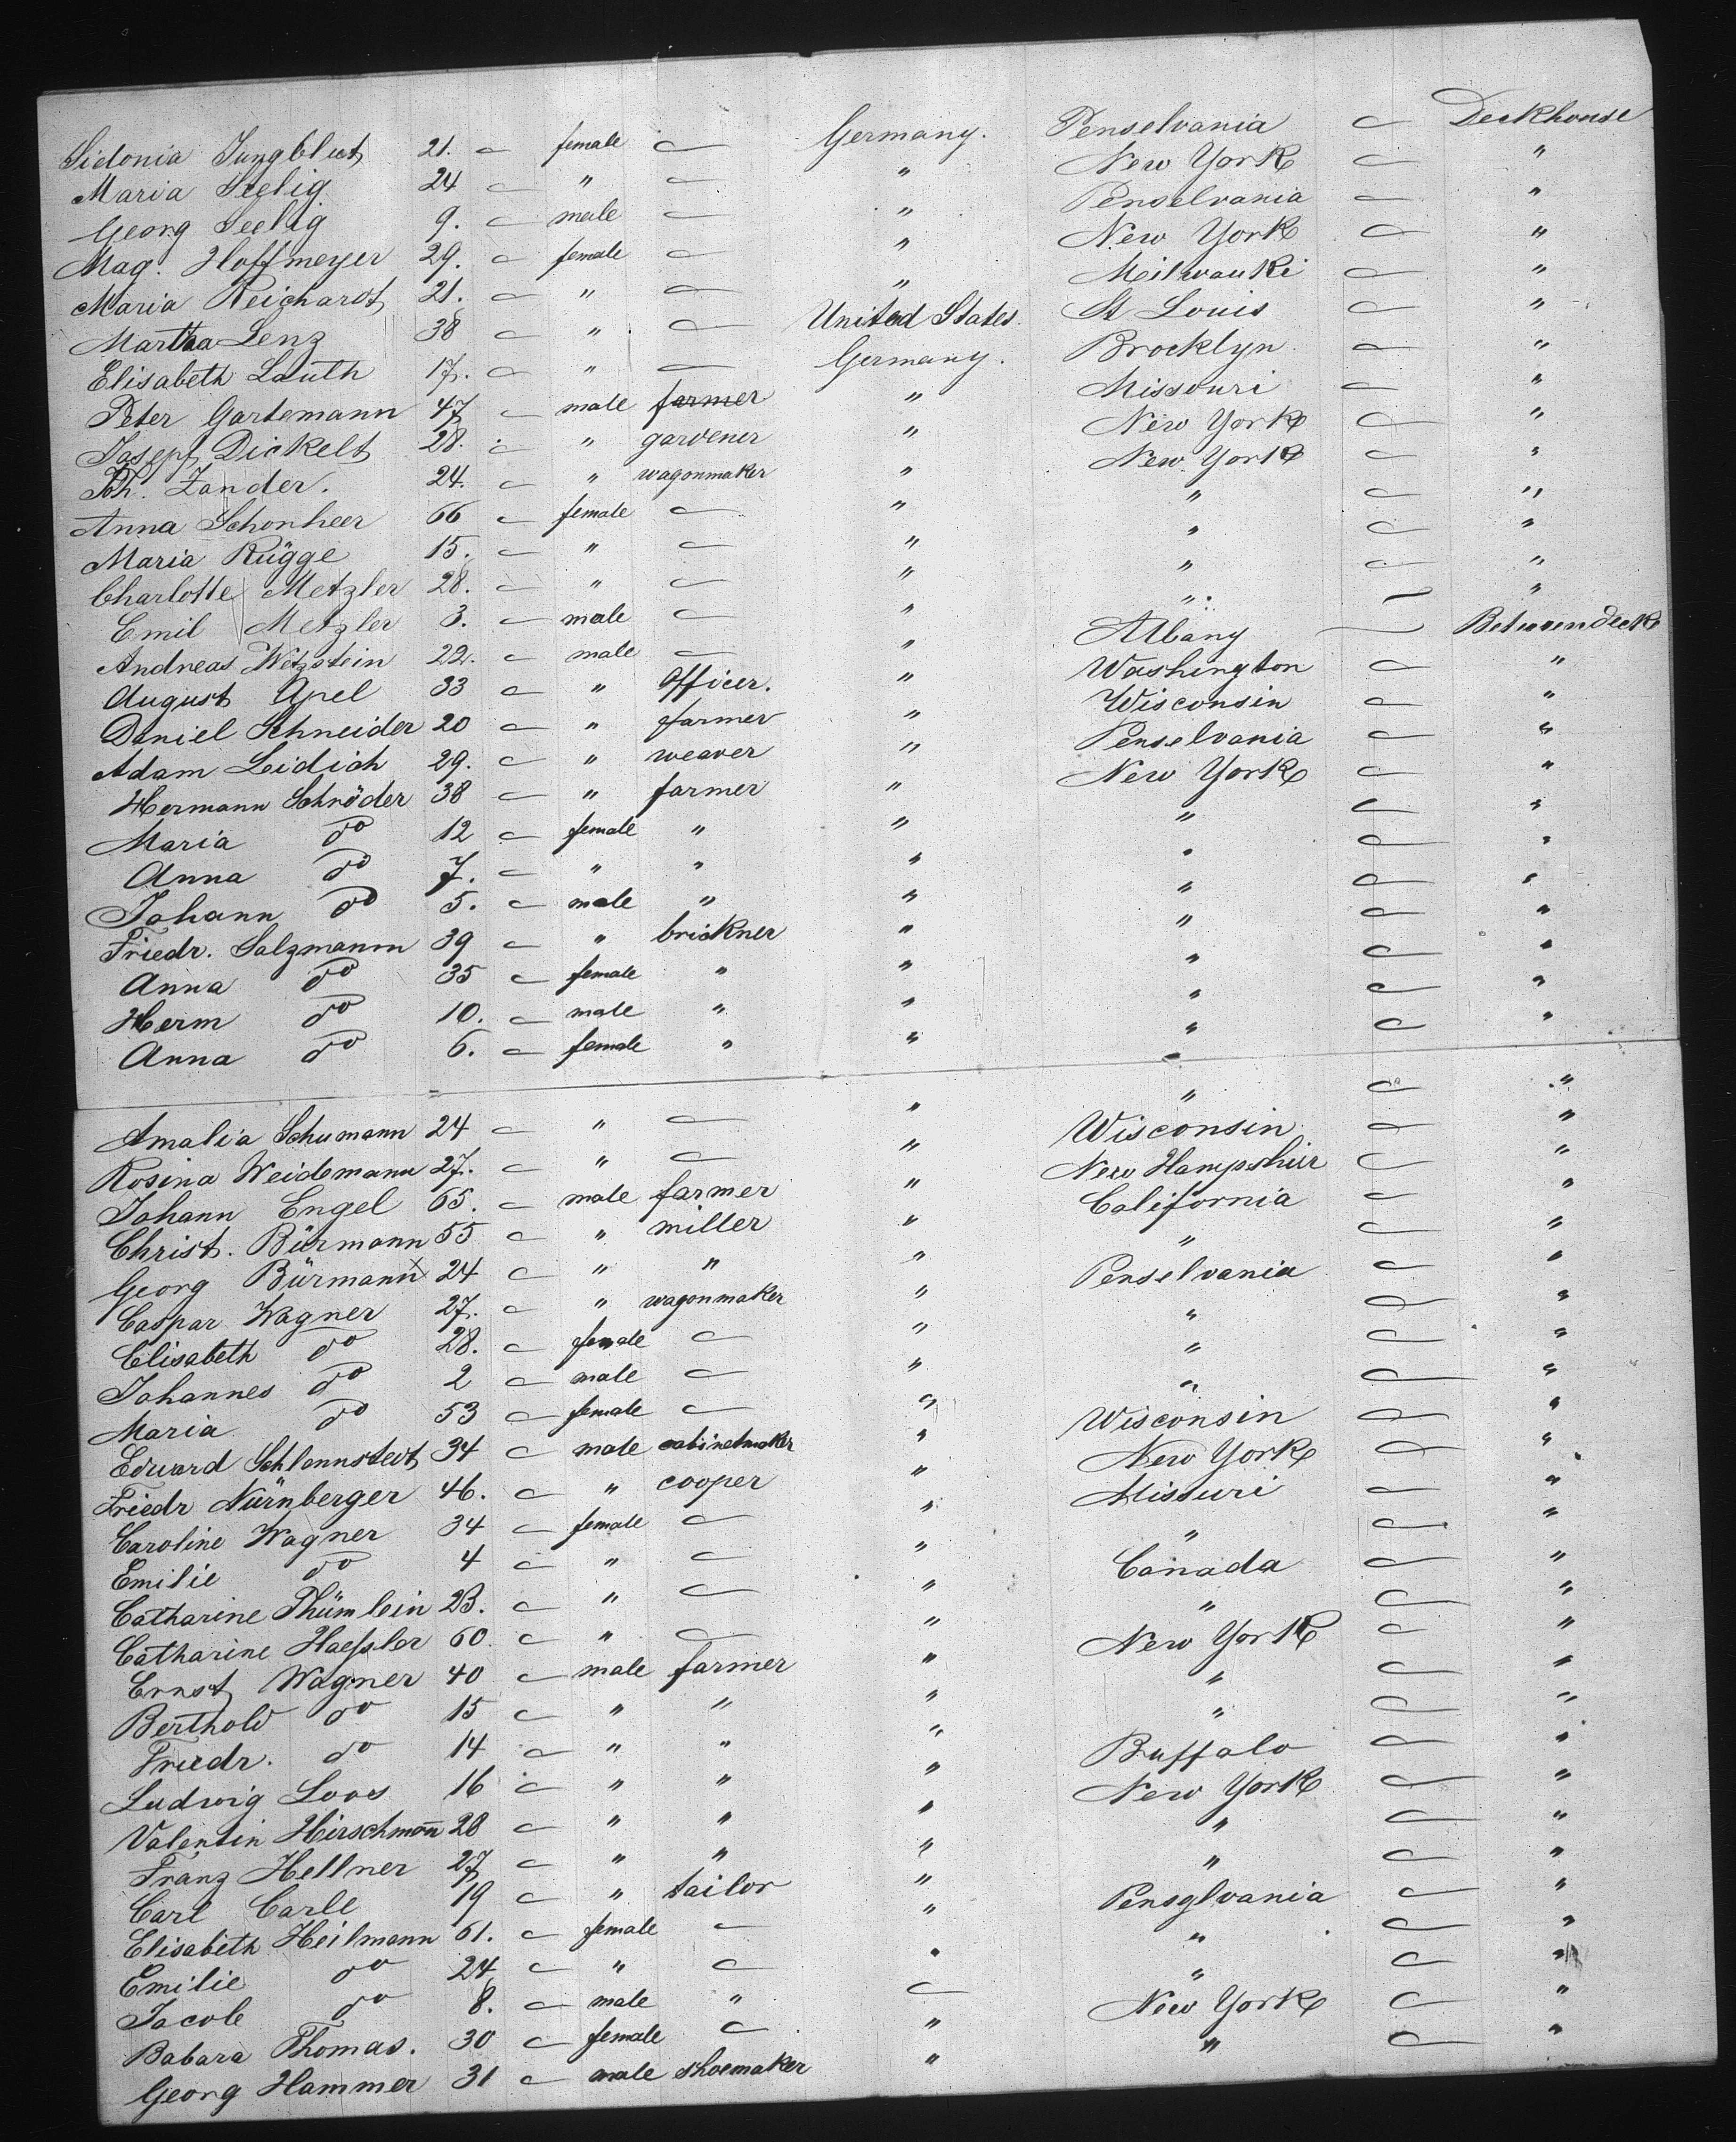 Sidonia Jungblut 21. — female — Germany. Penselvania — Deckhouse
Maria Seelig 24 — " — " New York — "
Georg Seelig 9. — male — " Penselvania — "
Mag. Hoffmeyer 29. — female — " New York — "
Maria Reichardt 21. — " — " Meilwauki — "
Martha Lenz 38 — " — United States. St Louis — "
Elisabeth Lauth 17. — " — Germany. Brocklyn — "
Peter Gartemann 47 — male farmer " Missouri — "
Joseph Dickelt 28. — " gardener " New York — "
Joh. Zander. 24. — " wagonmaker " New York — "
Anna Schonheer 66 — female — " " — "
Maria Rügge 15. — " — " " — "
Charlotte Metzler 28. — " — " " — "
Emil Metzler 3. — male — " " — "
Andreas Witzstein 22. — male — " Albany — Betweendeck
August Apel 33 — " Officer. " Washington — "
Daniel Schneider 20 — " farmer " Wisconsin — "
Adam Leidich 29. — " weaver " Penselvania — "
Hermann Schröder 38 — " farmer " New York — "
Maria do 12 — female " " " — "
Anna do 7. — " " " " — "
Johann do 5. — male " " " — "
Friedr. Salzmann 39 — " brickner " " — "
Anna do 35 — female " " " — "
Herm do 10. — male " " " — "
Anna do 6. — female " " " — "
Amalia Schumann 24 — " — " " — "
Rosina Weidemann 27. — " — " Wisconsin — "
Johann Engel 65. — male farmer " New Hampshir — "
Christ. Bürmann 55 — " miller " California — "
Georg Bürmann 24 — " " " " — "
Caspar Wagner 27. — " wagonmaker " Penselvania — "
Elisabeth do 28. — female — " " — "
Johannes do 2 — male — " " — "
Maria do 53 — female — " " — "
Edward Schlennstedt 34 — male cabinetmaker " Wisconsin — "
Friedr Nürnberger 46. — " cooper " New York — "
Caroline Wagner 34 — female — " Missuri — "
Emilie do 4 — " — " " — "
Catharine Thümlein 23. — " — " Canada — "
Catharine Haessler 60. — " — " " — "
Ernst Wagner 40 — male farmer " New York — "
Berthold do 15 — " " " " — "
Friedr. do 14 — " " " " — "
Ludwig Loos 16 — " " " Buffalo — "
Valentin Hirschmann 28 — " " " New York — "
Franz Hellner 27 — " " " " — "
Carl Carle 19 — " tailor " " — "
Elisabeth Heilmann 61. — female — " Pensylvania — "
Emilie do 24 — " — " " — "
Jacob do 8. — male " — " — "
Babara Thomas. 30 — female — " New York — "
Georg Hammer 31 — male shoemaker " " — "